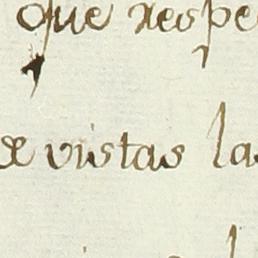 que respe
de vistas las